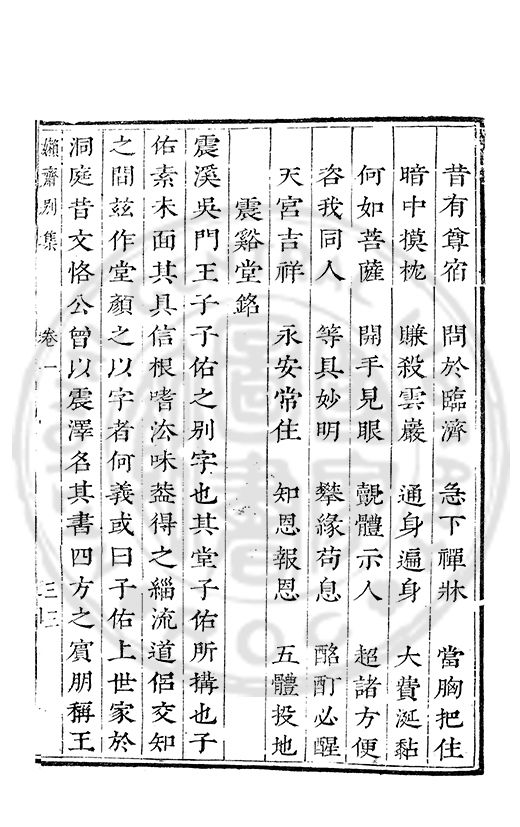 昔有尊宿　問於臨濟　急下禪牀　當胸把住
暗中摸枕　賺殺雲巖　通身遍身　大費涎黏
何如菩薩　開手見眼　覿體示人　超諸方便
咨我同人　等具妙明　攀緣苟息　酩酊必醒
天宮吉祥　永安常住　知恩報恩　五體投地
震谿堂銘
震溪吳門王子子佑之别字也其堂子佑所搆也子
佑素未面其具信根嗜法味葢得之緇流道侶交知
之間兹作堂顏之以字者何義或曰子佑上世家於
洞庭昔文恪公曾以震澤名其書四方之賓朋稱王
嬾齋别集　卷一